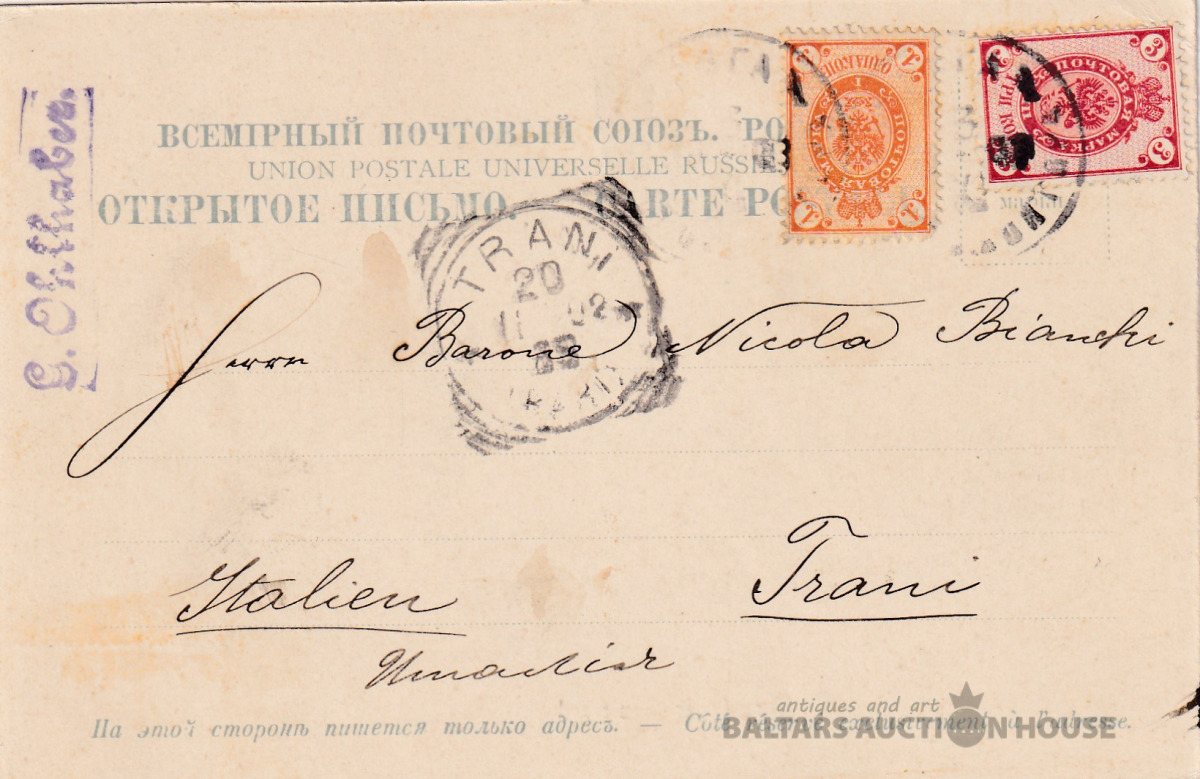 ВСЕМІРНЫЙ ПОЧТОВЫЙ СОЮЗЪ. РО
UNION POSTALE UNIVERSELLE RUSSIE
ОТКРЫТОЕ ПИСЬМО. CARTE PO
1 1
ОДНА КОП.
ПОЧТОВАЯ МАРКА
1 1
3
ТРИ КОП.
ПОЧТОВАЯ МАРКА
3 3
TRANI
20
11 02
Herrn Barone Nicola Bianchi
Italien Trani
Италія
На этой сторонѣ пишется только адресъ. — Côté réservé exclusivement à l'adresse.
antiques and art
BALTARS AUCTION HOUSE